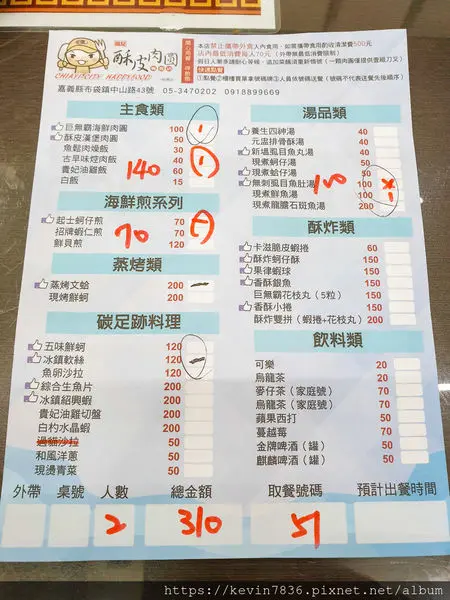 福記
酥皮肉圓
CHIAYI CITY HAPPYFOOD
本店禁止攜帶外食入內食用,如需攜帶食用酌收清潔費500元
店內最低消費每人70元 (外帶無最低消費限制)
快速點餐
嘉義縣布袋鎮中山路43號 05-3470202 0918899669
主食類
巨無霸海鮮肉圓 100 1
酥皮漢堡肉圓 50
魚鬆肉燥飯 30
古早味焢肉飯 40 1
貴妃油雞飯 60
白飯 15
140
海鮮煎系列
起士蚵仔煎 70
招牌蝦仁煎 70
鮮貝煎 70
70
蒸烤類
蒸烤文蛤 200
現烤鮮蚵 200
碳足跡料理
五味鮮蚵 120
冰鎮軟絲 120
魚卵沙拉 120
綜合生魚片 200
冰鎮紹興蝦 200
貴妃油雞切盤 200
白灼水晶蝦 200
過貓沙拉 50
和風洋蔥 50
現燙青菜 50
湯品類
養生四神湯 40
元盅排骨酥湯 40
新塭虱目魚丸湯 40
現煮蚵仔湯 50
現煮蛤仔湯 50
無刺虱目魚肚湯 100
現煮鮮魚湯 100
現煮龍膽石斑魚湯 200
100
酥炸類
卡滋脆皮蝦捲 60
酥炸蚵仔酥 150
果律蝦球 150
香酥銀魚 150
巨無霸花枝丸(5粒) 150
香酥小捲 150
酥炸雙拼(蝦捲+花枝丸) 200
飲料類
可樂 20
烏龍茶 20
麥仔茶(家庭號) 50
烏龍茶(家庭號) 50
蘋果西打 50
蔓越莓 70
金牌啤酒(罐) 50
麒麟啤酒(罐) 50
外帶 桌號 人數 總金額 取餐號碼 預計出餐時間
2 310 51
https://kevin7836.pixnet.net/album